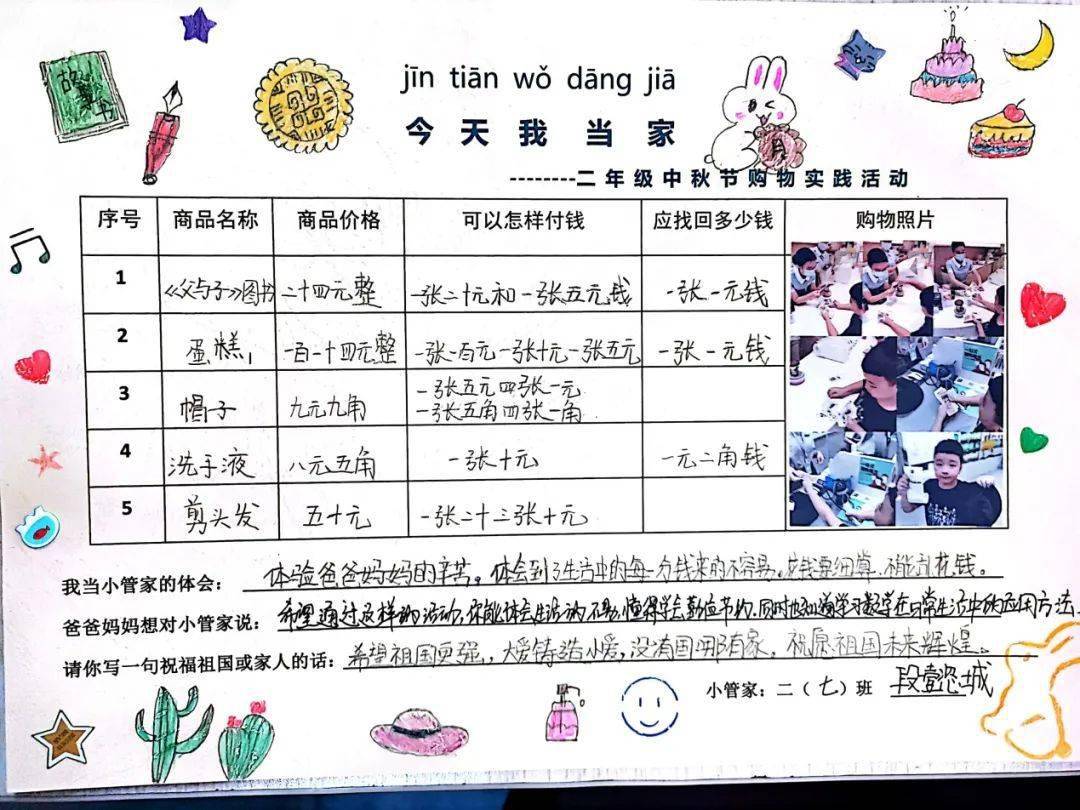 故事书
jīn tiān wǒ dāng jiā
今天我当家
月
--------二年级中秋节购物实践活动
序号 商品名称 商品价格 可以怎样付钱 应找回多少钱 购物照片
1 《父与子》图书 二十四元整 一张二十元和一张五元钱 一张一元钱
2 蛋糕 一百一十四元整 一张一百元一张十元一张五元 一张一元钱
3 帽子 九元九角 一张五元四张一元
一张五角四张一角
4 洗手液 八元五角 一张十元 一元二角钱
5 剪头发 五十元 一张二十三张十元
我当小管家的体会:体验爸爸妈妈的辛苦。体会到了生活中的每一分钱来的不容易。花钱要细算.不能乱花钱。
爸爸妈妈想对小管家说:希望通过这样的活动,你能体会生活的不易,懂得学会勤俭节约.同时也知道学习数学在日常生活中的应用方法.
请你写一句祝福祖国或家人的话:希望祖国更强,大爱铸造小爱,没有国哪有家,祝愿祖国未来辉煌。
小管家:二(七)班 段懿城